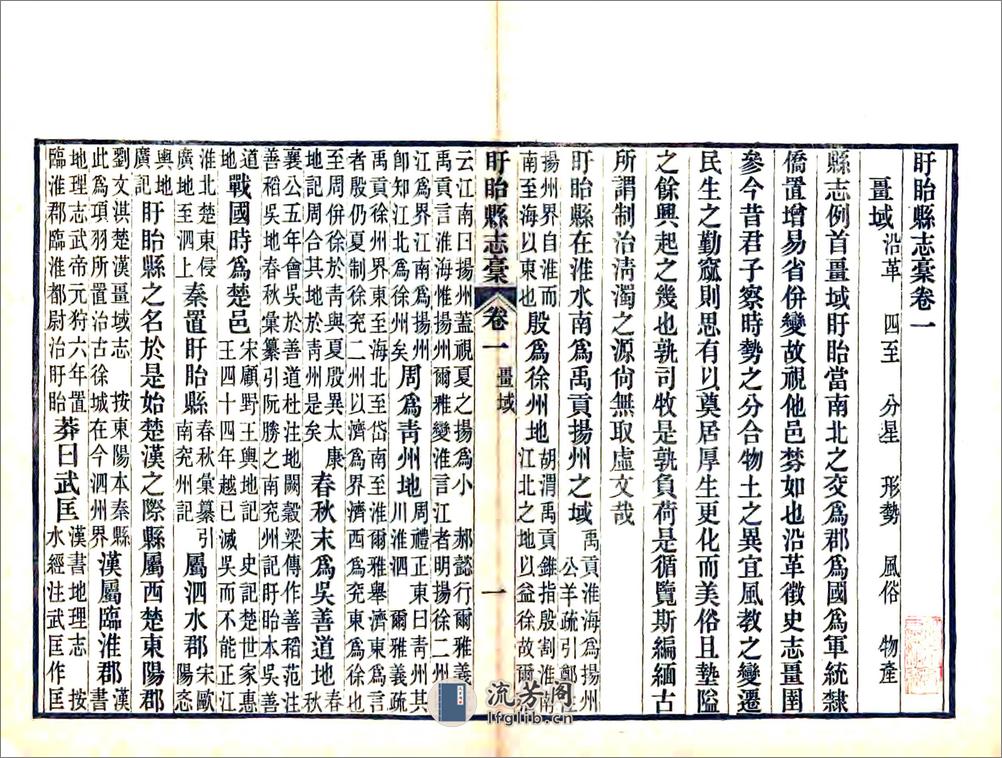 盱眙縣志稾卷一
畺域 沿革 四至 分星 形勢 風俗 物產
縣志例首畺域盱眙當南北之交爲郡爲國爲軍統隸
僑置增易省併變故視他邑棼如也沿革徵史志畺圉
參今昔君子察時勢之分合物土之異宜風教之變遷
民生之勤窳則思有以奠居厚生更化而美俗且墊隘
之餘興起之幾也孰司牧是孰負荷是循覽斯編緬古
所謂制治淸濁之源尙無取虛文哉
盱眙縣在淮水南爲禹貢揚州之域 禹貢淮海爲揚州 公羊疏引鄭注
揚州界自淮而 南至海以東也 殷爲徐州地 胡渭禹貢錐指殷割淮南 江北之地以益徐故爾
盱眙縣志稾 卷一 畺域 一
云江南曰揚州蓋視夏之揚爲小 郝懿行爾雅義
禹貢言淮海惟揚州爾雅變淮言江者明揚徐二州
江爲界江南爲揚州 卽知江北爲徐州矣 周爲靑州地 周禮正東曰靑州其 川淮泗 爾雅義疏
禹貢徐州界東至海北至岱南至淮爾雅舉濟東爲言
者殷仍夏制徐兗二州以濟爲界濟西爲兗東爲徐也
至周併徐於靑與夏殷異太康 地記周合其地於靑州是矣 春秋末爲吳善道地 春秋
襄公五年會吳於善道杜注地闕穀梁傳作善稻范注
善稻吳地春秋彙纂引阮勝之南兗州記盱眙本吳善
道地 戰國時爲楚邑 宋顧野王輿地記 史記楚世家惠 王四十四年越已滅吳而不能正江
淮北楚東侵 廣地至泗上 秦置盱眙縣 春秋彙纂引 南兗州記 屬泗水郡 宋歐陽忞
輿地廣記 盱眙縣之名於是始楚漢之際縣屬西楚東陽郡
劉文淇楚漢畺域志 按東陽本秦縣 此爲項羽所置治古徐城在今泗州界 漢屬臨淮郡 漢書
地理志武帝元狩六年置 臨淮郡臨淮都尉治盱眙 莽曰武匡 漢書地理志 按 水經注武匡作匡
流芳阁
lfglib.cn